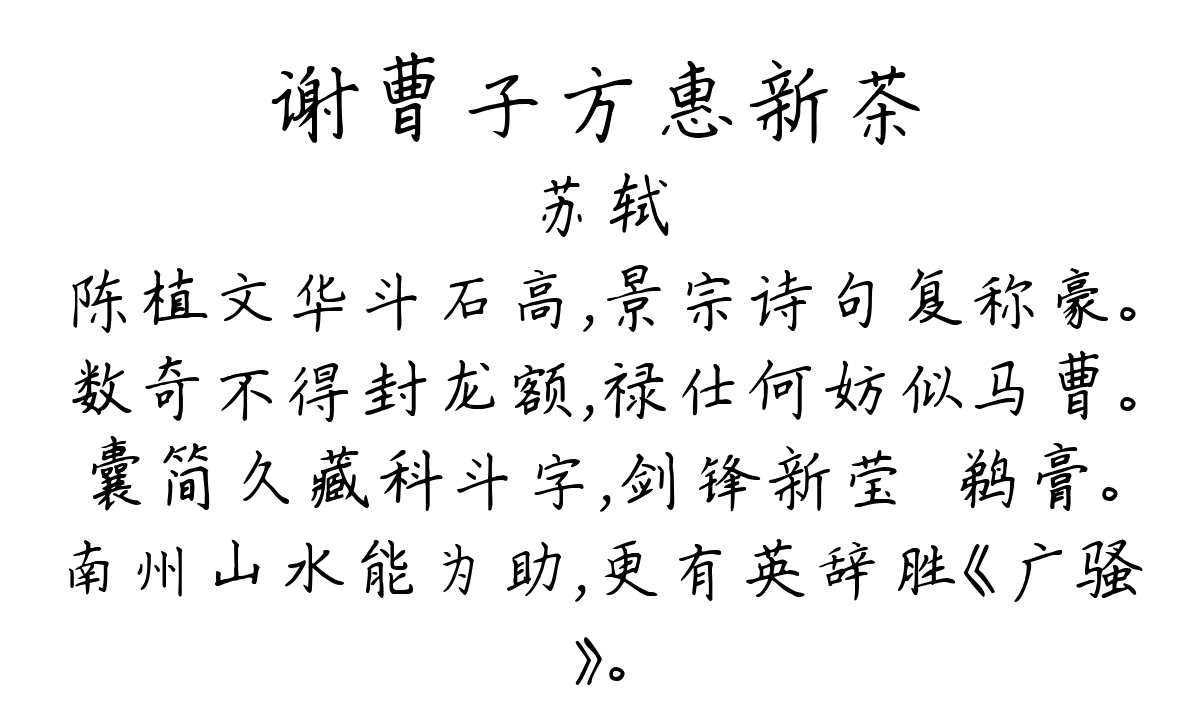 谢曹子方惠新茶
苏轼
陈植文华斗石高,景宗诗句复称豪。
数奇不得封龙额,禄仕何妨似马曹。
囊简久藏科斗字,剑锋新莹 鹈膏。
南州山水能为助,更有英辞胜《广骚
》。